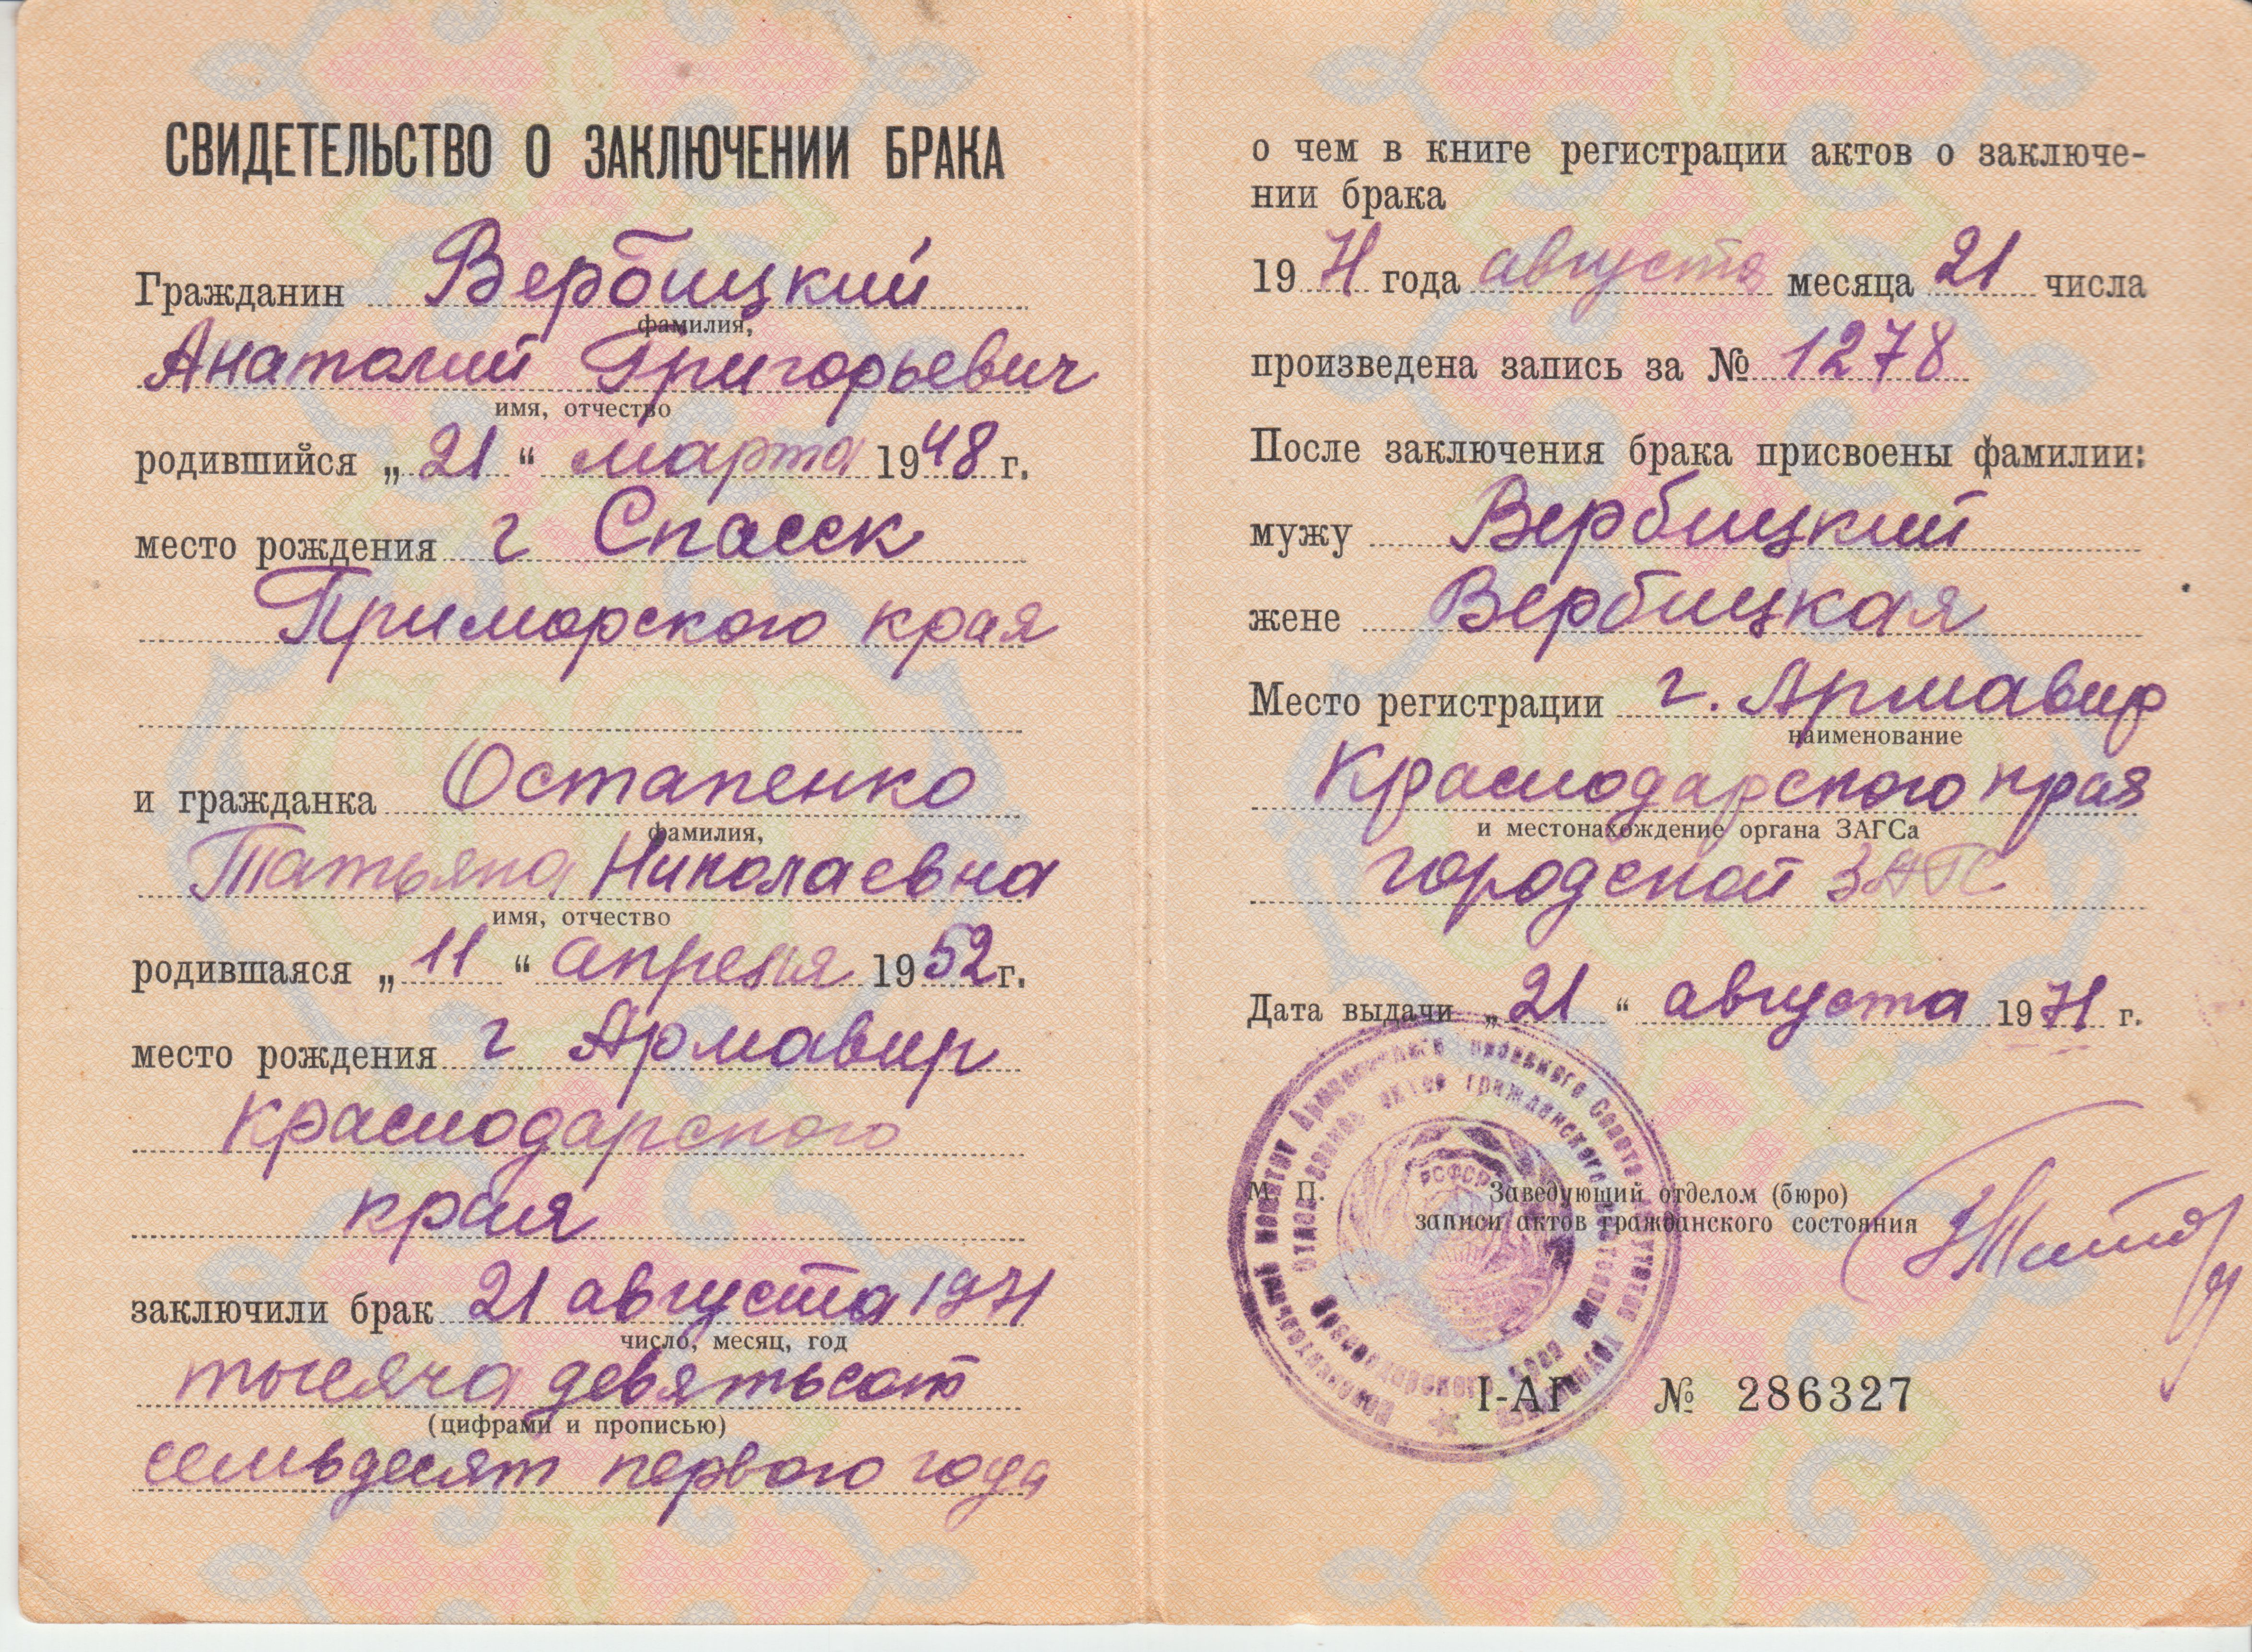 СВИДЕТЕЛЬСТВО О ЗАКЛЮЧЕНИИ БРАКА
Гражданин Вербицкий
фамилия,
Анатолий Григорьевич
имя, отчество
родившийся „ 21 “ марта 1948 г.
место рождения г Спасск
Приморского края
и гражданка Остапенко
фамилия,
Татьяна Николаевна
имя, отчество
родившаяся „ 11 “ апреля 1952 г.
место рождения г Армавир
Краснодарского
края
заключили брак 21 августа 1971
число, месяц, год
тысяча девятьсот
(цифрами и прописью)
семьдесят первого года
о чем в книге регистрации актов о заключе-
нии брака
1971 года августа месяца 21 числа
произведена запись за № 1278
После заключения брака присвоены фамилии:
мужу Вербицкий
жене Вербицкая
Место регистрации г. Армавир
наименование
Краснодарского края
и местонахождение органа ЗАГСа
городской ЗАГС
Дата выдачи „ 21 “ августа 1971 г.
М. П.
Заведующий отделом (бюро)
записи актов гражданского состояния
РСФСР
I-АГ № 286327